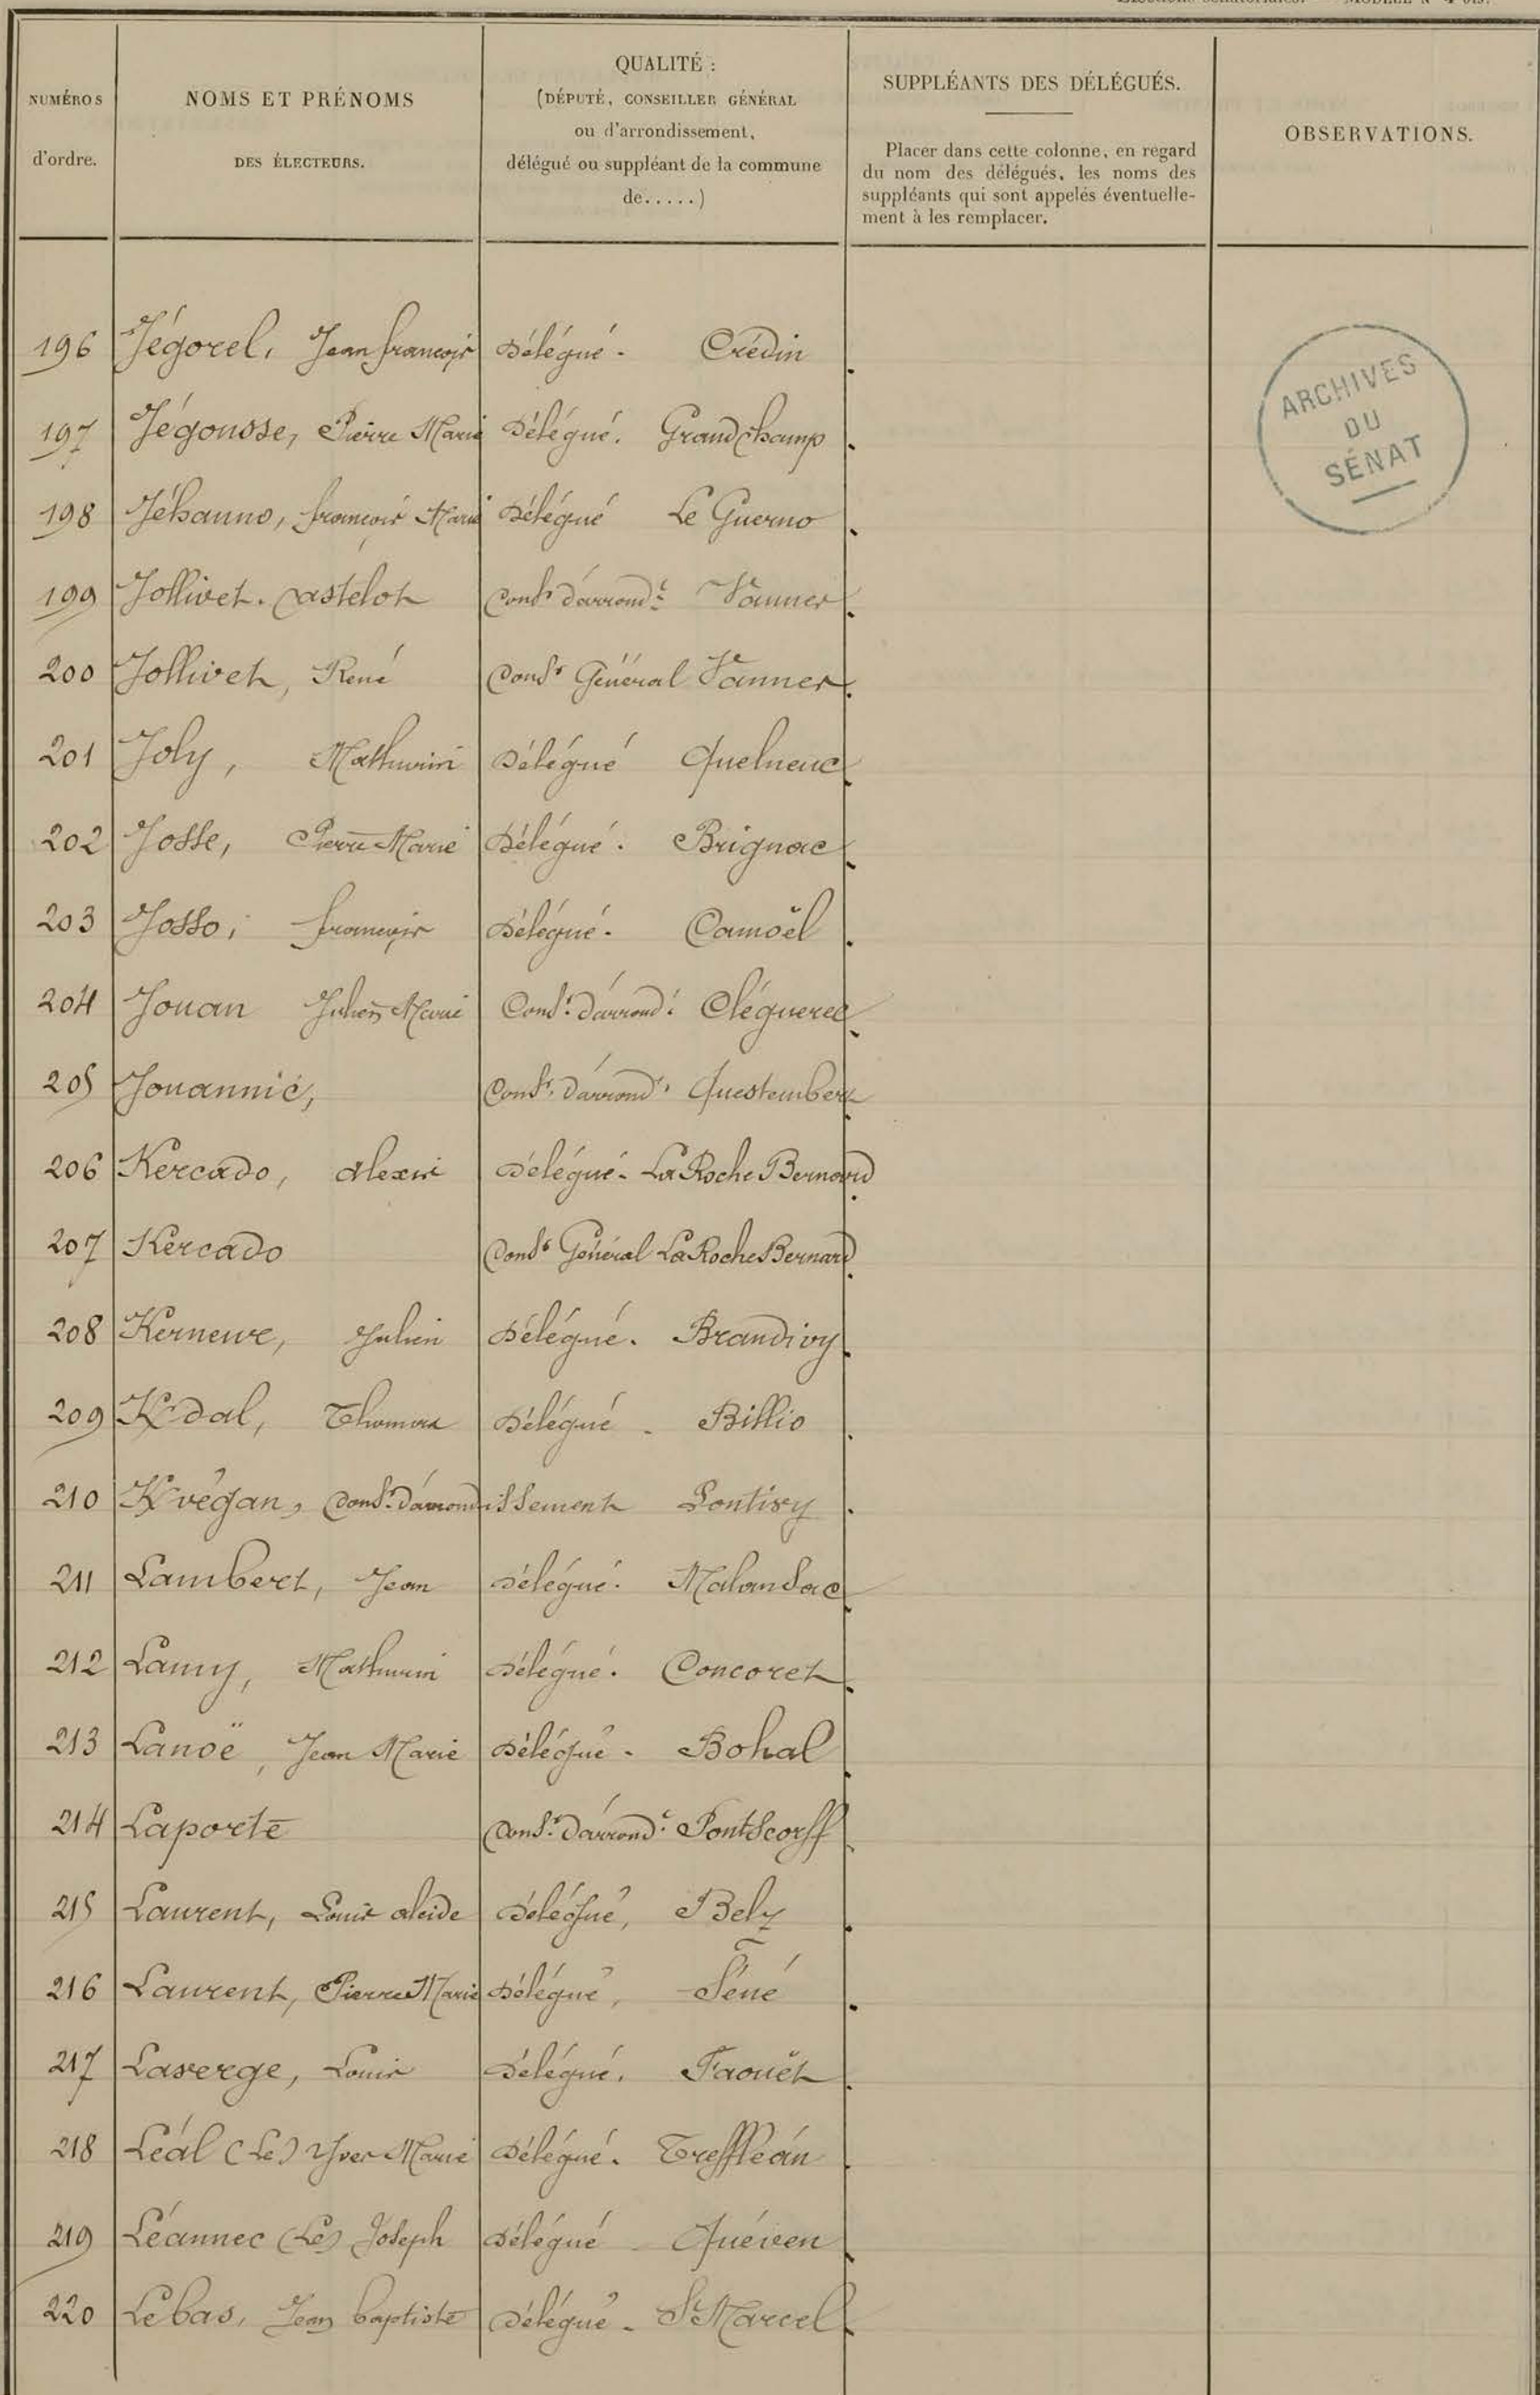 NUMÉROS d'ordre.
NOMS ET PRÉNOMS
DES ÉLECTEURS.
QUALITÉ :
(DÉPUTÉ, CONSEILLER GÉNÉRAL
ou d'arrondissement,
délégué ou suppléant de la commune
de.....)
SUPPLÉANTS DES DÉLÉGUÉS.
Placer dans cette colonne, en regard
du nom des délégués, les noms des
suppléants qui sont appelés éventuelle-
ment à les remplacer.
OBSERVATIONS.
196 Jégorel, Jean françois Délégué. Crédin
197 Jégousse, Pierre Marie Délégué. Grandchamp
198 Jéhanno, françois Marie Délégué Le Guerno
199 Jollivet. Castelot Consr d'arrondt Vannes
200 Jollivet, René Consr Général Vannes
201 Joly, Mathurin Délégué Quelneuc
202 Josse, Pierre Marie Délégué. Brignac
203 Josso, françois Délégué. Camoël
204 Jouan Julien Marie Consr d'arrondt Cléguerec
205 Jouannic, Consr d'arrondt Questembert
206 Kercado, Alexis Délégué. La Roche Bernard
207 Kercado Consr Général La Roche Bernard
208 Kerneur, Julien Délégué. Brandivy
209 Kdal, Thomas Délégué. Billio
210 Kvégan, Consr d'arrondissement Pontivy
211 Lambert, Jean Délégué. Malansac
212 Lamy, Mathurin Délégué. Concoret
213 Lanoë, Jean Marie Délégué. Bohal
214 Laporte Consr d'arrondt Pontscorff
215 Laurent, Louis alcide Délégué, Belz
216 Laurent, Pierre Marie Délégué, Séné
217 Laverge, Louis Délégué. Faouët
218 Léal (Le) Yves Marie Délégué. Treffléan
219 Léannec (Le) Joseph Délégué Quéven
220 Lebas, Jean baptiste Délégué. St Marcel
ARCHIVES
DU
SÉNAT